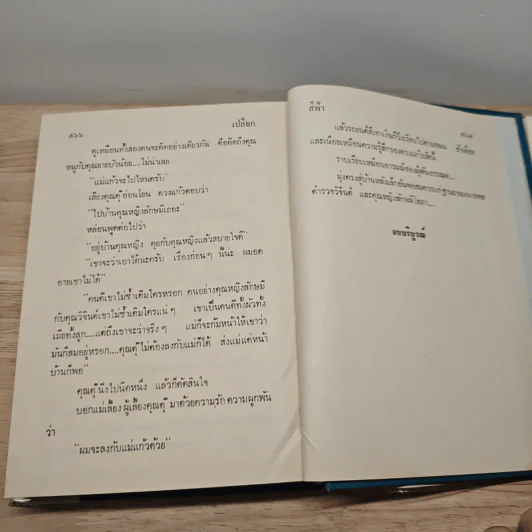 ๕๖๖
เปลือก
ดูเหมือนทั้งสองคนจะคิดอย่างเดียวกัน คือคิดถึงคุณ
หนูกับคุณชายบัวน้อย....ไม่น่าเลย
"แม่แก้วจะไปไหนครับ"
เสียงคุณตุ๊อ่อนโยน ดวงแก้วตอบว่า
"ไปบ้านคุณหญิงลักษมีเถอะ"
หล่อนพูดต่อไปว่า
"อยู่บ้านคุณหญิง คุยกับคุณหญิงแล้วสบายใจดี"
"เขาจะว่าเอาได้นะครับ เรื่องก่อนๆ นี้น่ะ ผมอด
อายเขาไม่ได้"
"คนดีเขาไม่ซ้ำเติมใครหรอก คนอย่างคุณหญิงลักษมี
กับคุณวิจินต์เขาไม่ซ้ำเติมใครแน่ๆ เขาเป็นคนดีทั้งผัวทั้ง
เมียทั้งลูก....แต่ถึงเขาจะว่าจริงๆ แม่ก็จะก้มหน้าให้เขาว่า
มันก็สมอยู่หรอก....คุณตุ๊ไม่ต้องลงกับแม่ก็ได้ ส่งแม่แค่หน้า
บ้านก็พอ"
คุณตุ๊นิ่งไปนิดหนึ่ง แล้วก็ตัดสินใจ
บอกแม่เลี้ยง ผู้เลี้ยงคุณตุ๊มาด้วยความรัก ความผูกพัน
ว่า
"ผมจะลงกับแม่แก้วด้วย"
สีฟ้า
แล้วรถยนต์สีเทาเงินก็วิ่งเรื่อยไปตามถนน
และเนือยเหมือนความรู้สึกของดวงแก้วบัดนี้
ราบเรียบเหมือนอารมณ์ของผู้พ้นมรสุม....
ตำรวจวิจินต์ และคุณหญิงลักษมีโสภา....
จบบริบูรณ์